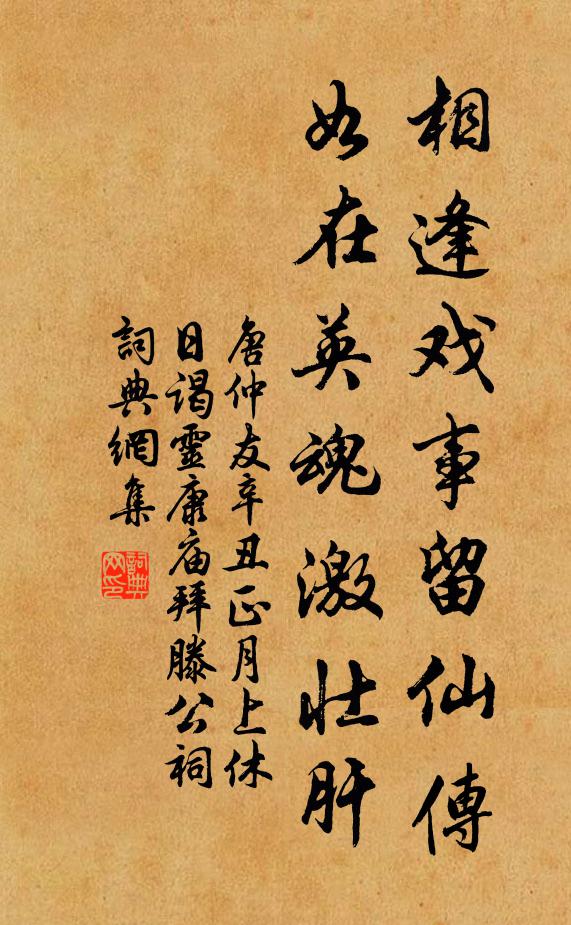 相逢戏事留仙傳
如在英魂激壮肝
唐仲友辛丑正月上休
日謁靈康庙拜滕公祠
詞典網集
詞典网印